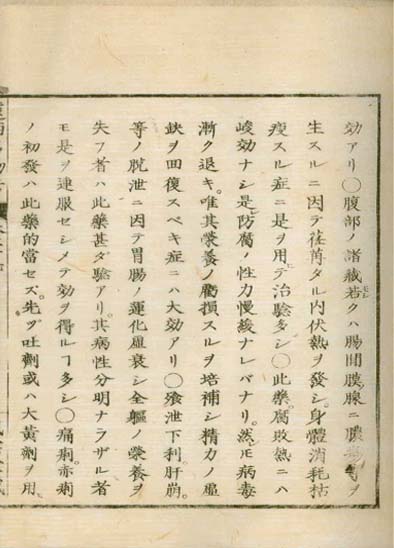 効アリ〇腹部ノ諸蔵若クハ腸間膜腺ニ膿等ヲ
生スルニ因テ荏苒タル内伏熱ヲ發シ。身體消耗枯
瘦スル症ニ是ヲ用テ治驗多シ〇此藥。腐敗熱ニハ
峻効ナシ是防腐ノ性力慢緩ナレバナリ。然𪜈病毒
漸ク退キ。唯其榮養ノ虧損スルヲ培補シ精力ノ虛
缺ヲ回復スベキ症ニハ大効アリ〇飧泄下利。肝崩。
等ノ脫泄ニ因テ胃腸ノ運化虛衰シ全軀ノ榮養ヲ
失フ者ハ此藥甚ダ驗アリ。其病性分明ナラザル者
モ是ヲ連服セシメテ効ヲ得ルヿ多シ〇痛痢。赤痢
ノ初發ハ此藥的當セズ。先ヅ吐劑或ハ大黃劑ヲ用